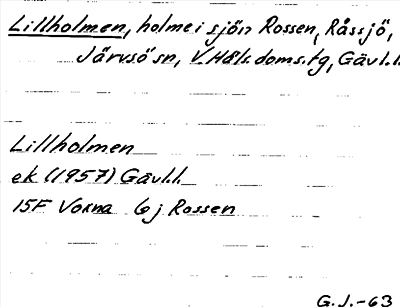 Lillholmen, holme i sjön Rossen, Råssjö,
Järvsö sn, V. Häls. doms.tg, Gävl.l.
Lillholmen
ek (1957) Gävl.l.
15F Voxna 6j Rossen
G.J.-63